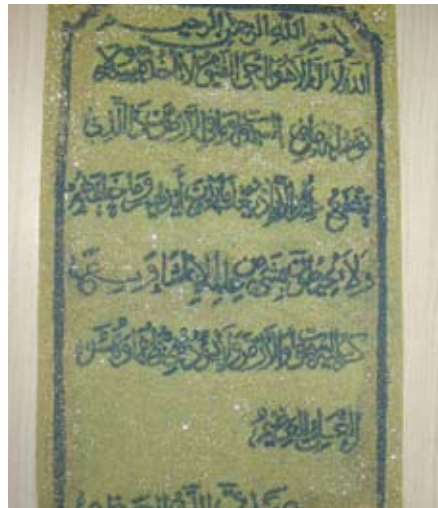 بسم الله الرحمن الرحيم
الله لا اله الا هو الحي القيوم لا تاخذه سنة ولا
نوم له ما في السموات وما في الارض من ذا الذي
يشفع عنده الا باذنه يعلم ما بين ايديهم وما خلفهم
ولا يحيطون بشيء من علمه الا بما شاء وسع
كرسيه السموات والارض ولا يؤده حفظهما وهو
العلي العظيم
صدق الله العظيم